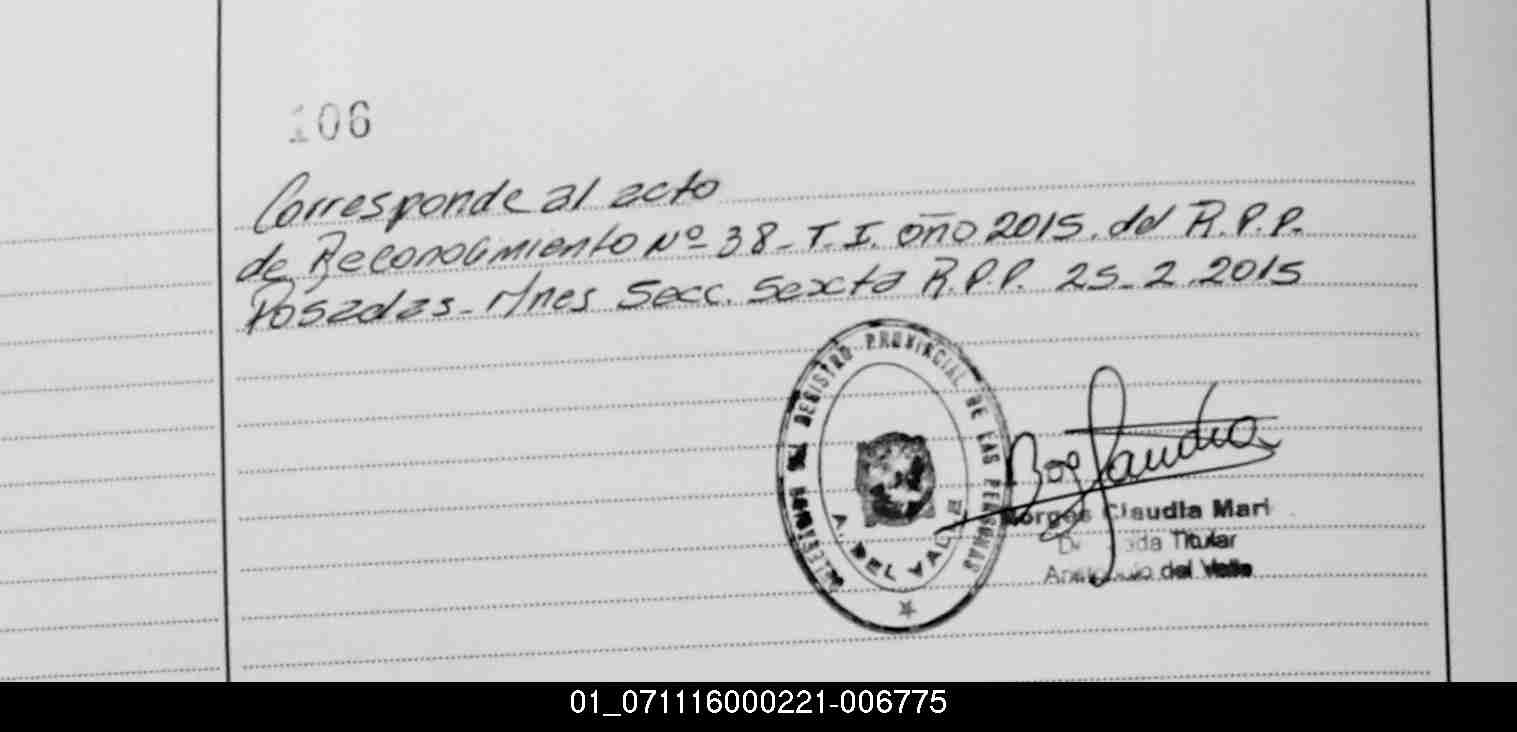 106
Corresponde al acto
de Reconocimiento Nº 38_ T. I. año 2015. del R.P.P.
Posadas_ Mnes Secc. Sexta R.P.P. 25_2.2015
REGISTRO PROVINCIAL DE LAS PERSONAS
A. DEL VALLE
Borges Claudia Mari
Titular
del Valle
01_071116000221-006775